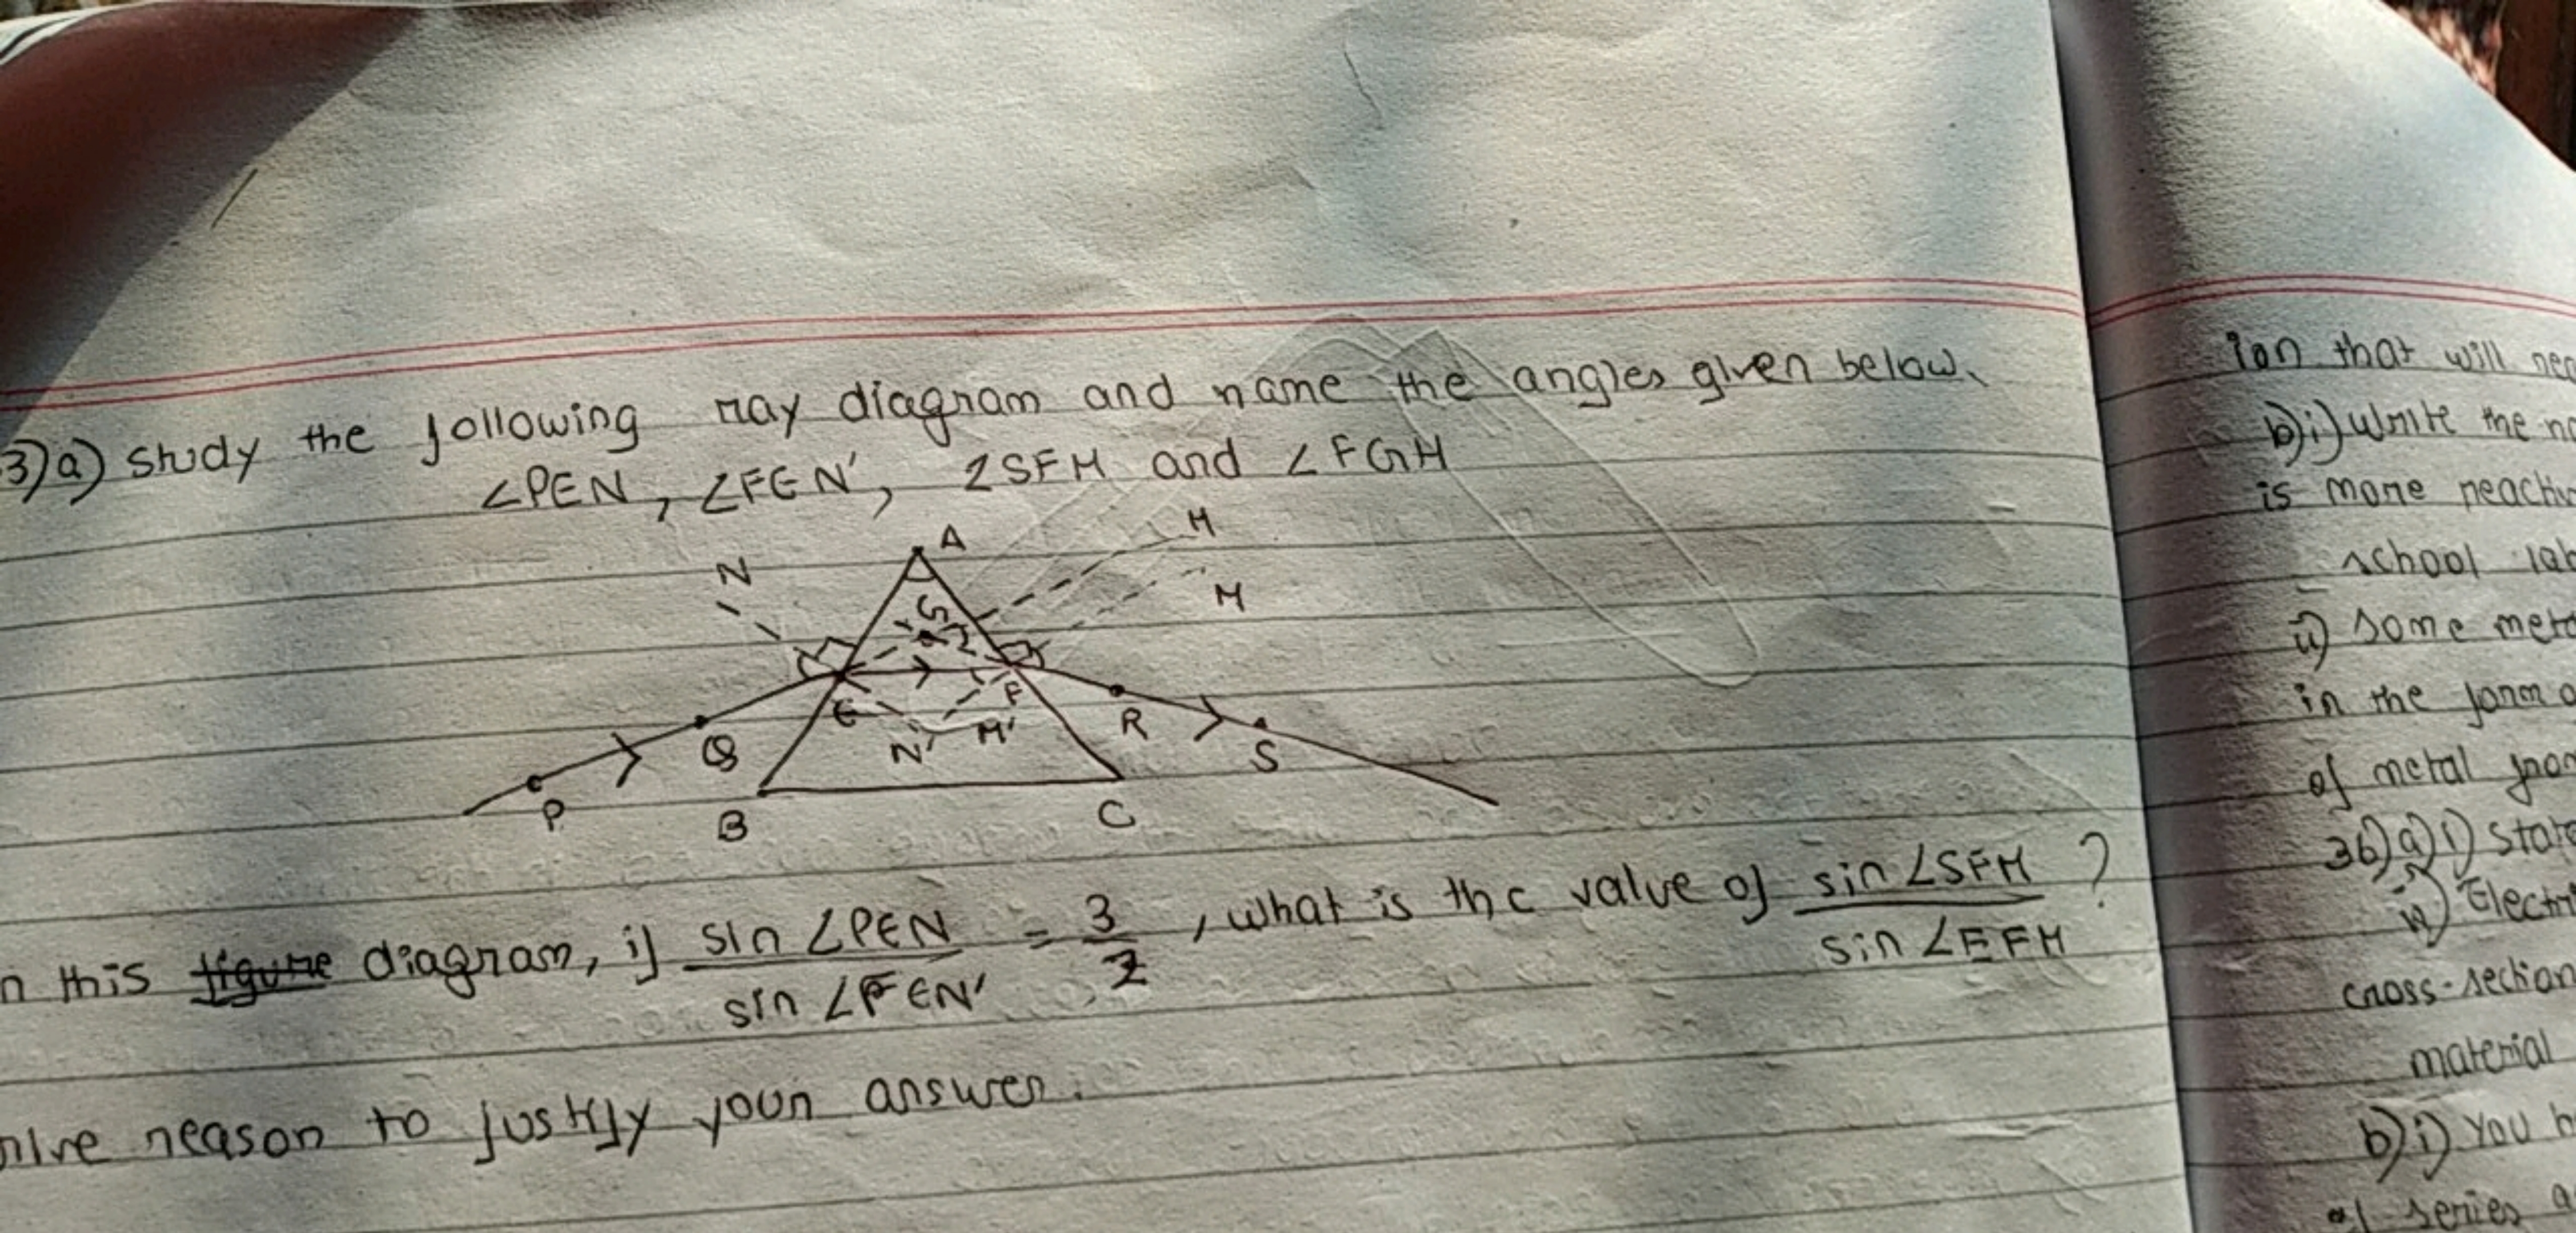 3)a) Study the following ray diagram and name the angles given below.
∠PEN, ∠FEN', ∠SFM and ∠FGH
A
H
N
M
G
E
F
Q
N'
M'
R
S
P
B
C
n this figure diagram, if sin ∠PEN / sin ∠FEN' = 3/2, what is the value of sin ∠SFM / sin ∠EFM ?
reason to justify your answer.
ion that will
b)i) Write the
is more
school
ii) Some
in the form
of metal
36)a)i)
ii)
cross-section
material
b)i) You
series